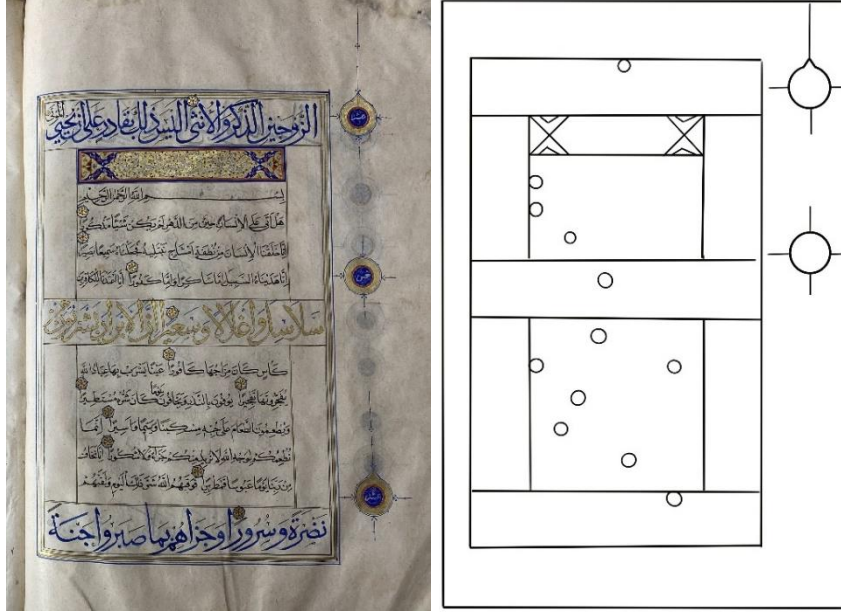 الزوجين الذكر والانثى اليس ذلك بقادر على ان يحيي الموتى
بسم الله الرحمن الرحيم
هل اتى على الانسان حين من الدهر لم يكن شيئا مذكورا
انا خلقنا الانسان من نطفة امشاج نبتليه فجعلناه سميعا بصيرا
انا هديناه السبيل اما شاكرا واما كفورا انا اعتدنا للكافرين
سلاسل واغلالا وسعيرا ان الابرار يشربون من
كاس كان مزاجها كافورا عينا يشرب بها عباد الله
يفجرونها تفجيرا يوفون بالنذر ويخافون يوما كان شره مستطيرا
ويطعمون الطعام على حبه مسكينا ويتيما واسيرا انما
نطعمكم لوجه الله لا نريد منكم جزاء ولا شكورا انا نخاف
من ربنا يوما عبوسا قمطريرا فوقيهم الله شر ذلك اليوم ولقيهم
نضرة وسرورا وجزاهم بما صبروا جنة